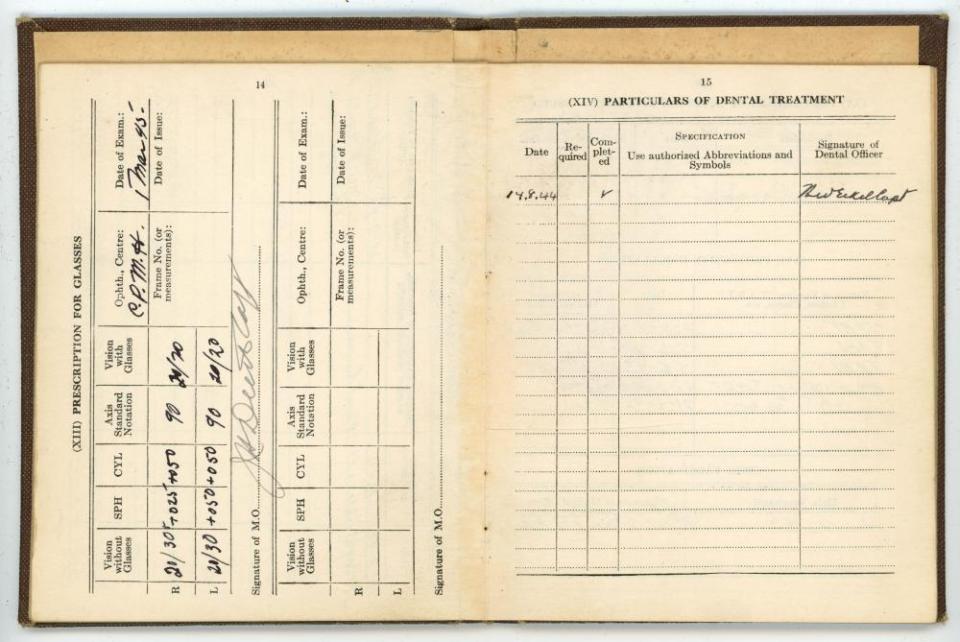 14
(XIII) PRESCRIPTION FOR GLASSES
Vision without Glasses SPH CYL Axis Standard Notation Vision with Glasses Ophth., Centre: C.P.M.H. Date of Exam.: 1 Mar 45
R 20/30 +025 +050 90 20/20 Frame No. (or measurements): Date of Issue:
L 20/30 +050 +050 90 20/20
Signature of M.O.
Vision without Glasses SPH CYL Axis Standard Notation Vision with Glasses Ophth., Centre: Date of Exam.:
R Frame No. (or measurements): Date of Issue:
L
Signature of M.O.
15
(XIV) PARTICULARS OF DENTAL TREATMENT
Date Re-quired Com-plet-ed SPECIFICATION Use authorized Abbreviations and Symbols Signature of Dental Officer
8.44 ✓ Capt